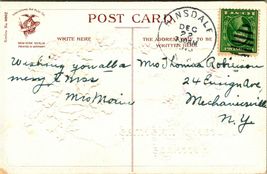 POST CARD
WRITE NEAR
THE ADDRESS TO BE
WRITTEN HERE
INSDALE
DEC
Wishing you all a
merry X mas
Mrs Moin
Mrs Thomas Robinson
24 Ensign Ave
Mechanicville
N. Y